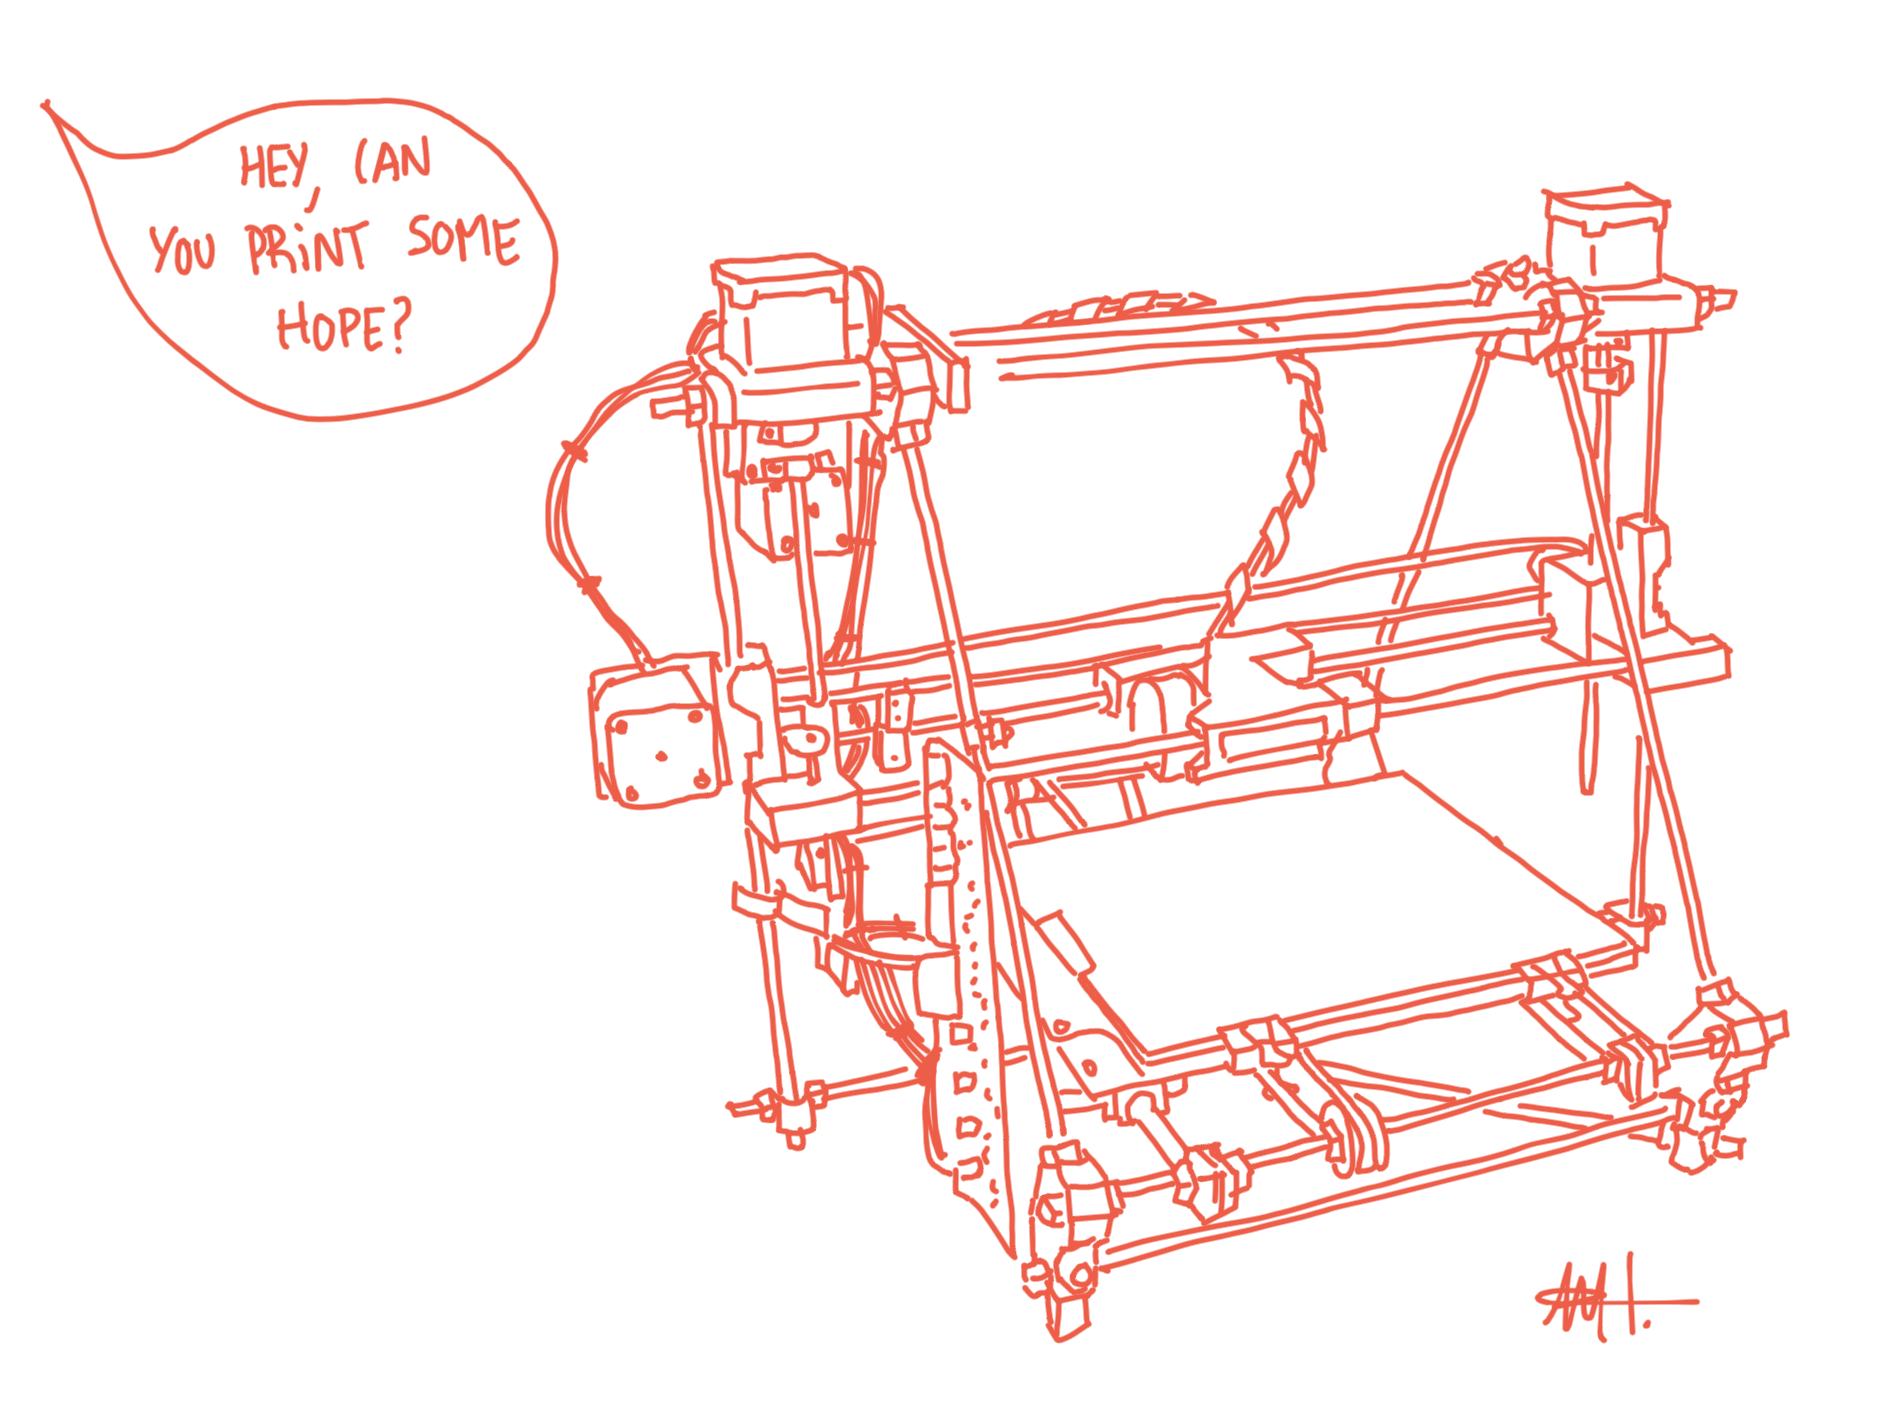 HEY, CAN
YOU PRiNT SOME
HOPE?